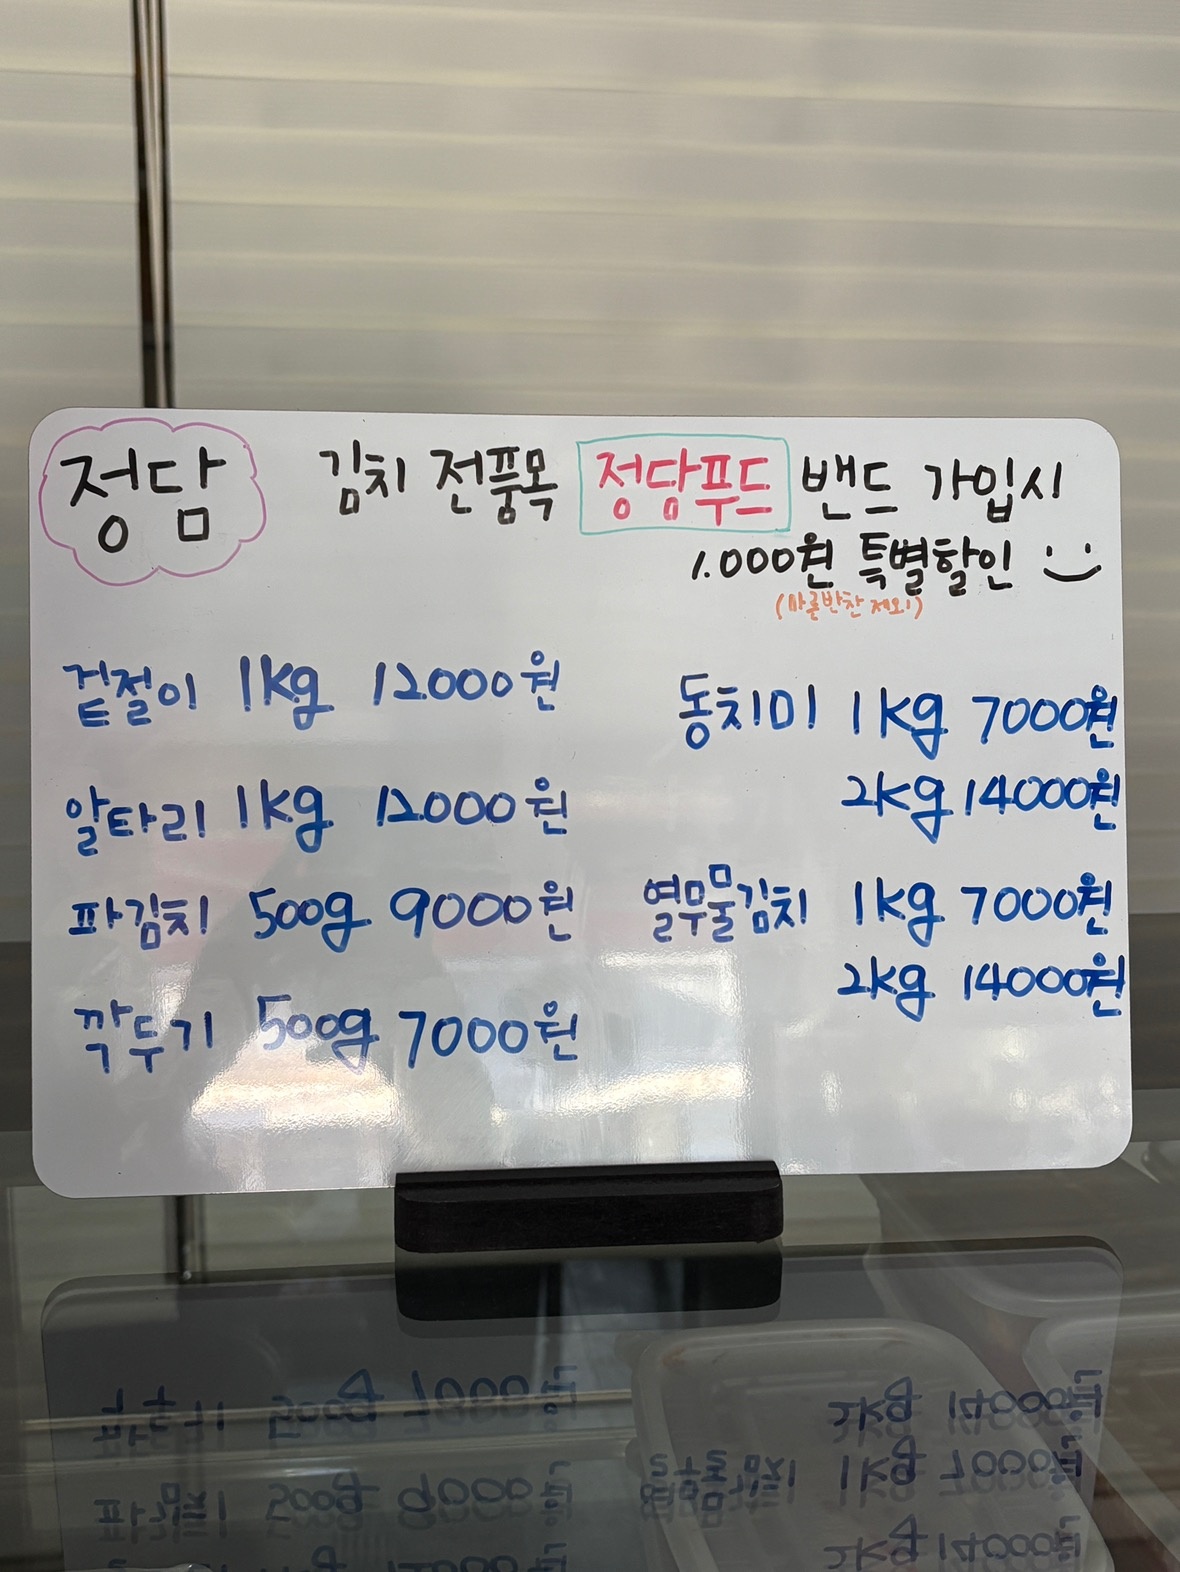 정담
김치 전품목 정담푸드 밴드 가입시
1.000원 특별할인
(마른반찬 제외)
겉절이 1kg 12000원
알타리 1kg 12000원
파김치 500g 9000원
깍두기 500g 7000원
동치미 1kg 7000원
2kg 14000원
열무물김치 1kg 7000원
2kg 14000원